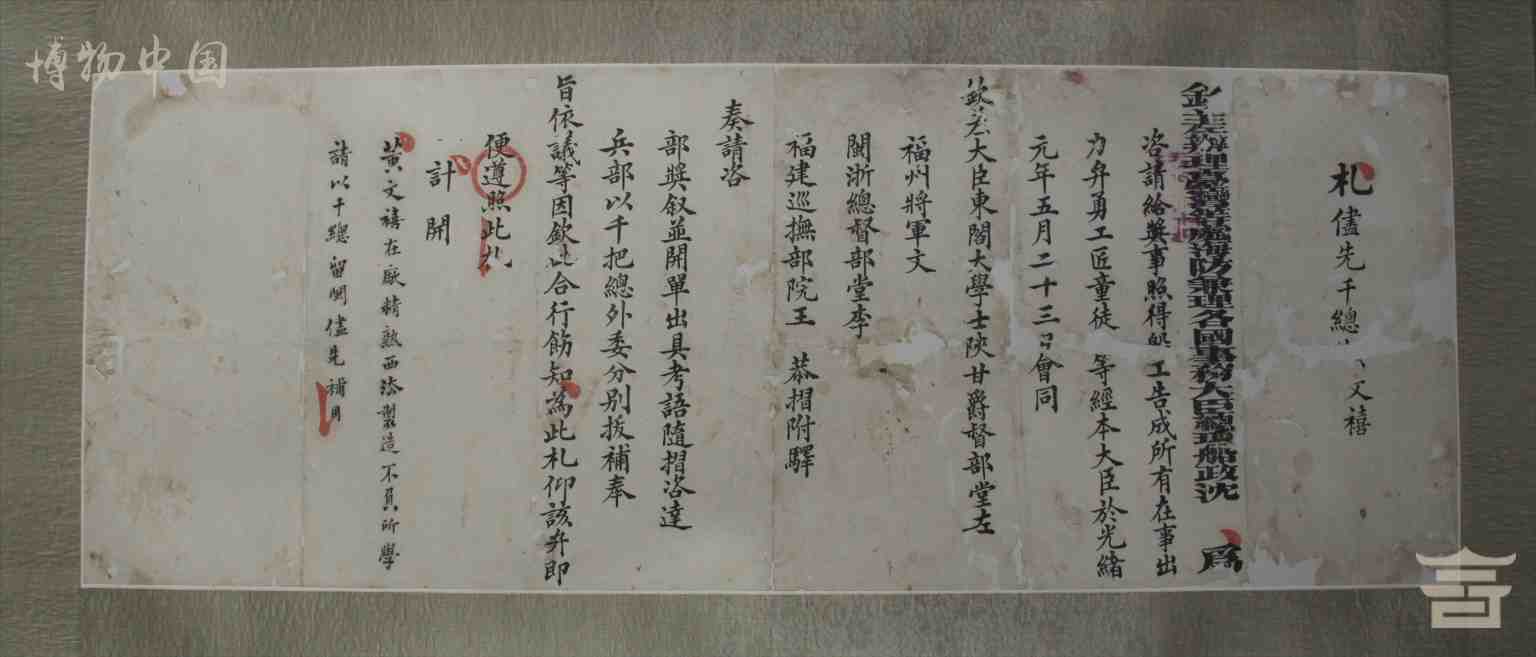 博物中国
札儘先千總 文禧
欽差辦理臺灣等處海防兼理各國事務大臣總理船政沈 爲
咨請給獎事照得 工告成所有在事出
力弁勇工匠童徒 等經本大臣於光緒
元年五月二十三日會同
欽差大臣東閣大學士陝甘爵督部堂左
福州將軍文
閩浙總督部堂李
福建巡撫部院王 恭摺附驛
奏請咨
部獎叙並開單出具考語隨摺咨達
兵部以千把總外委分別拔補奉
旨依議等因欽此合行飭知為此札仰該弁即
便遵照此札
計開
黃文禧在厰精熟西法製造不負所學
請以千總留閩儘先補用